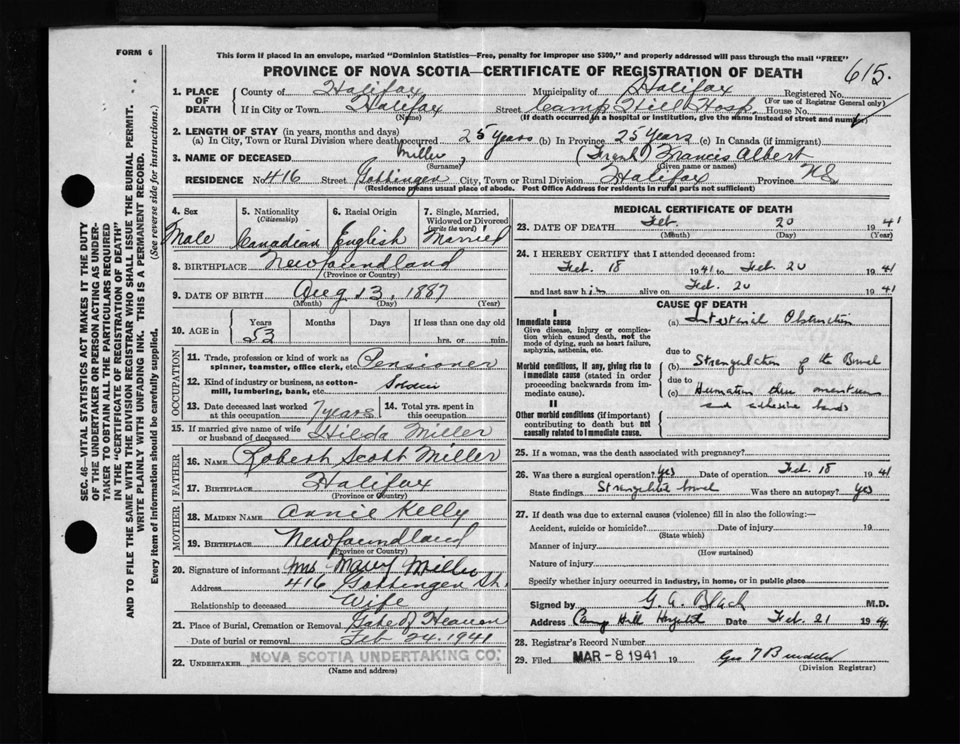 FORM 6
This form if placed in an envelope, marked "Dominion Statistics—Free, penalty for improper use $300," and properly addressed will pass through the mail "FREE"
PROVINCE OF NOVA SCOTIA—CERTIFICATE OF REGISTRATION OF DEATH
615.
1. PLACE OF DEATH County of Halifax Municipality of Halifax Registered No.
(For use of Registrar General only)
If in City or Town Halifax Street Camp Hill Hosp. House No.
(Name) (If death occurred in a hospital or institution, give the name instead of street and number)
2. LENGTH OF STAY (in years, months and days)
(a) In City, Town or Rural Division where death occurred 25 years (b) In Province 25 years (c) In Canada (if immigrant)
3. NAME OF DECEASED Miller, (Frank) Francis Albert
(Surname) (Given name or names)
RESIDENCE No 416 Street Gottingen City, Town or Rural Division Halifax Province N.S.
(Residence means usual place of abode. Post Office Address for residents in rural parts not sufficient)
4. Sex Male
5. Nationality (Citizenship) Canadian
6. Racial Origin English
7. Single, Married, Widowed or Divorced (write the word) Married
8. BIRTHPLACE Newfoundland
(Province or Country)
9. DATE OF BIRTH Aug 13, 1887
(Month) (Day) (Year)
10. AGE in Years 53 Months Days If less than one day old hrs. or min.
OCCUPATION
11. Trade, profession or kind of work as spinner, teamster, office clerk, etc. Pensioner
12. Kind of industry or business, as cotton-mill, lumbering, bank, etc. Soldier
13. Date deceased last worked at this occupation 7 years 14. Total yrs. spent in this occupation
15. If married give name of wife or husband of deceased Hilda Miller
FATHER
16. NAME Robert Scott Miller
17. BIRTHPLACE Halifax
(Province or Country)
MOTHER
18. MAIDEN NAME Annie Kelly
19. BIRTHPLACE Newfoundland
(Province or Country)
20. Signature of informant Mrs Mary Miller
Address 416 Gottingen St.
Relationship to deceased Wife
21. Place of Burial, Cremation or Removal Gate of Heaven
Date of burial or removal Feb 24. 1941
22. UNDERTAKER NOVA SCOTIA UNDERTAKING CO.
(Name and address)
MEDICAL CERTIFICATE OF DEATH
23. DATE OF DEATH Feb. 20 1941
(Month) (Day) (Year)
24. I HEREBY CERTIFY that I attended deceased from:
Feb. 18 1941 to Feb. 20 1941
and last saw him alive on Feb. 20 1941
CAUSE OF DEATH
I
Immediate cause
Give disease, injury or complication which caused death, not the mode of dying, such as heart failure, asphyxia, asthenia, etc.
(a) Intestinal Obstruction
due to
Morbid conditions, if any, giving rise to immediate cause (stated in order proceeding backwards from immediate cause).
(b) Strangulation of the Bowel
due to
(c) Herniation thru omentum
and adhesive bands
II
Other morbid conditions (if important) contributing to death but not causally related to immediate cause.
25. If a woman, was the death associated with pregnancy?
26. Was there a surgical operation? Yes Date of operation Feb. 18 1941
State findings Strangulated bowel Was there an autopsy? Yes
27. If death was due to external causes (violence) fill in also the following:—
Accident, suicide or homicide? Date of injury 19
(State which)
Manner of injury
(How sustained)
Nature of injury
Specify whether injury occurred in industry, in home, or in public place
Signed by G. A. Black M.D.
Address Camp Hill Hospital Date Feb. 21 1941
28. Registrar's Record Number
29. Filed MAR - 8 1941 19 Geo
(Division Registrar)
SEC. 46—VITAL STATISTICS ACT MAKES IT THE DUTY
OF THE UNDERTAKER OR PERSON ACTING AS UNDER-
TAKER TO OBTAIN ALL THE PARTICULARS REQUIRED
IN THE "CERTIFICATE OF REGISTRATION OF DEATH"
AND TO FILE THE SAME WITH THE DIVISION REGISTRAR WHO SHALL ISSUE THE BURIAL PERMIT.
WRITE PLAINLY WITH UNFADING INK. THIS IS A PERMANENT RECORD.
Every item of information should be carefully supplied. (See reverse side for instructions.)